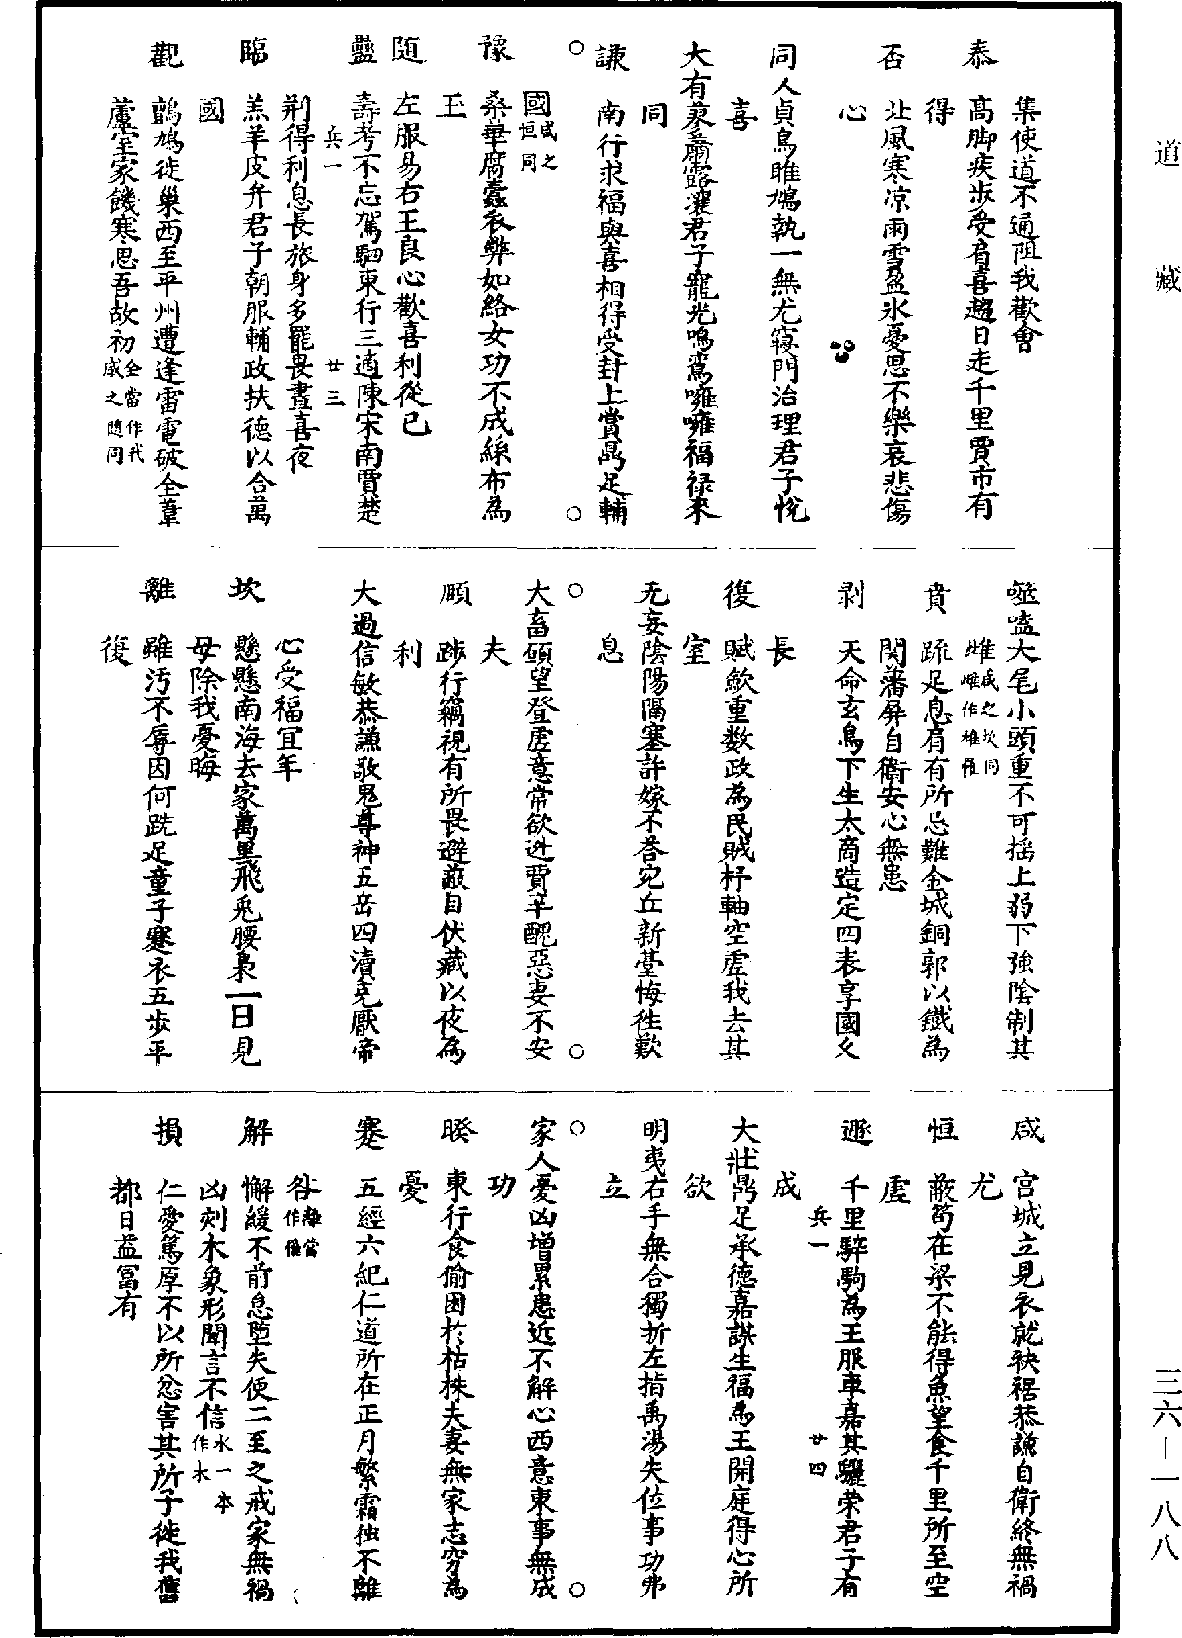 道藏
集使道不通阻我歡會
泰　高脚疾步受肩善趨日走千里賈市有
得
否　北風寒涼雨雪盈氷憂思不樂哀悲傷
心
同人貞鳥睢鳩執一無尤寢門治理君子悅
喜
大有蓼蕭露瀼君子寵光鳴鸞噰噰福祿來
同
謙　南行求福與喜相得受封上賞鼎足輔
國咸之恒同
豫　桑華腐蠹衣弊如絡女功不成絲布為
玉
随　左服易右王良心歡喜利從己
蠱　壽考不忘駕駟東行三適陳宋南賈楚
兵一　廿三
荆得利息長旅身多罷畏晝喜夜
臨　羔羊皮弁君子朝服輔政扶德以合萬
國
觀　鸇鳩徙巢西至平州遭逢雷電破全葦
蘆室家饑寒思吾故初全當作我咸之隨同
噬嗑大尾小頭重不可摇上弱下強陰制其
雌咸之坎同雌作雄
賁　疏足息肩有所忌難金城銅郭以鐵為
関藩屏自衛安心無患
剥　天命玄鳥下生太商造定四表享國久
長
復　賦歛重數政為民賊杼軸空虛我去其
室
无妄陰陽隔塞許嫁不荅宛丘新臺悔徃歎
息
大畜碩望登虛意常欲逃賈辛醜惡妻不安
夫
頤　踄行竊視有所畏避蔽目伏藏以夜為
利
大過信敏恭謙敬鬼尊神五岳四瀆克厭帝
心受福冝年
坎　懸懸南海去家萬里飛兎腰褭一日見
母除我憂晦
離　雖汚不辱因何跣足童子褰衣五步平
復
咸　宫城立見衣就袂裾恭謙自衛終無禍
尤
恒　蔽笱在梁不能得魚望食千里所至空
虛
遯　千里騂駒為王服車嘉其驪榮君子有
成　兵一　廿四
大壯鼎足承德嘉謀生福為王開庭得心所
欲
明夷右手無合獨折左指禹湯失位事功弗
立
家人憂凶增累患近不解心西意東事無成
功
睽　東行食偷困於枯株夫妻無家志窮為
憂
蹇　五經六紀仁道所在正月繁霜独不離
咎離當作罹
解　懈緩不前怠堕失便二至之戒家無禍
凶刻木象形聞言不信水一本作木
損　仁愛篤厚不以所忿害其所子徙我舊
都日益冨有
三六—一八八